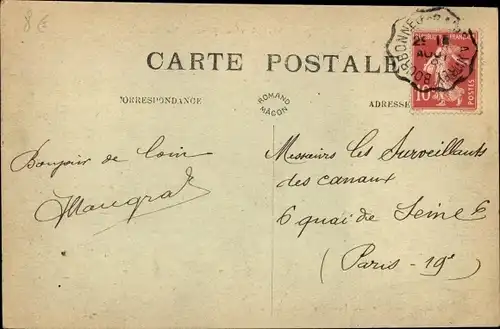 8 €
CARTE POSTALE
CORRESPONDANCE
ROMAND
MÂCON
ADRESSE
POSTES
10
Bonjour de loin
Messieurs les Surveillants
des canaux
6 quai de Seine 6
(Paris - 19e)